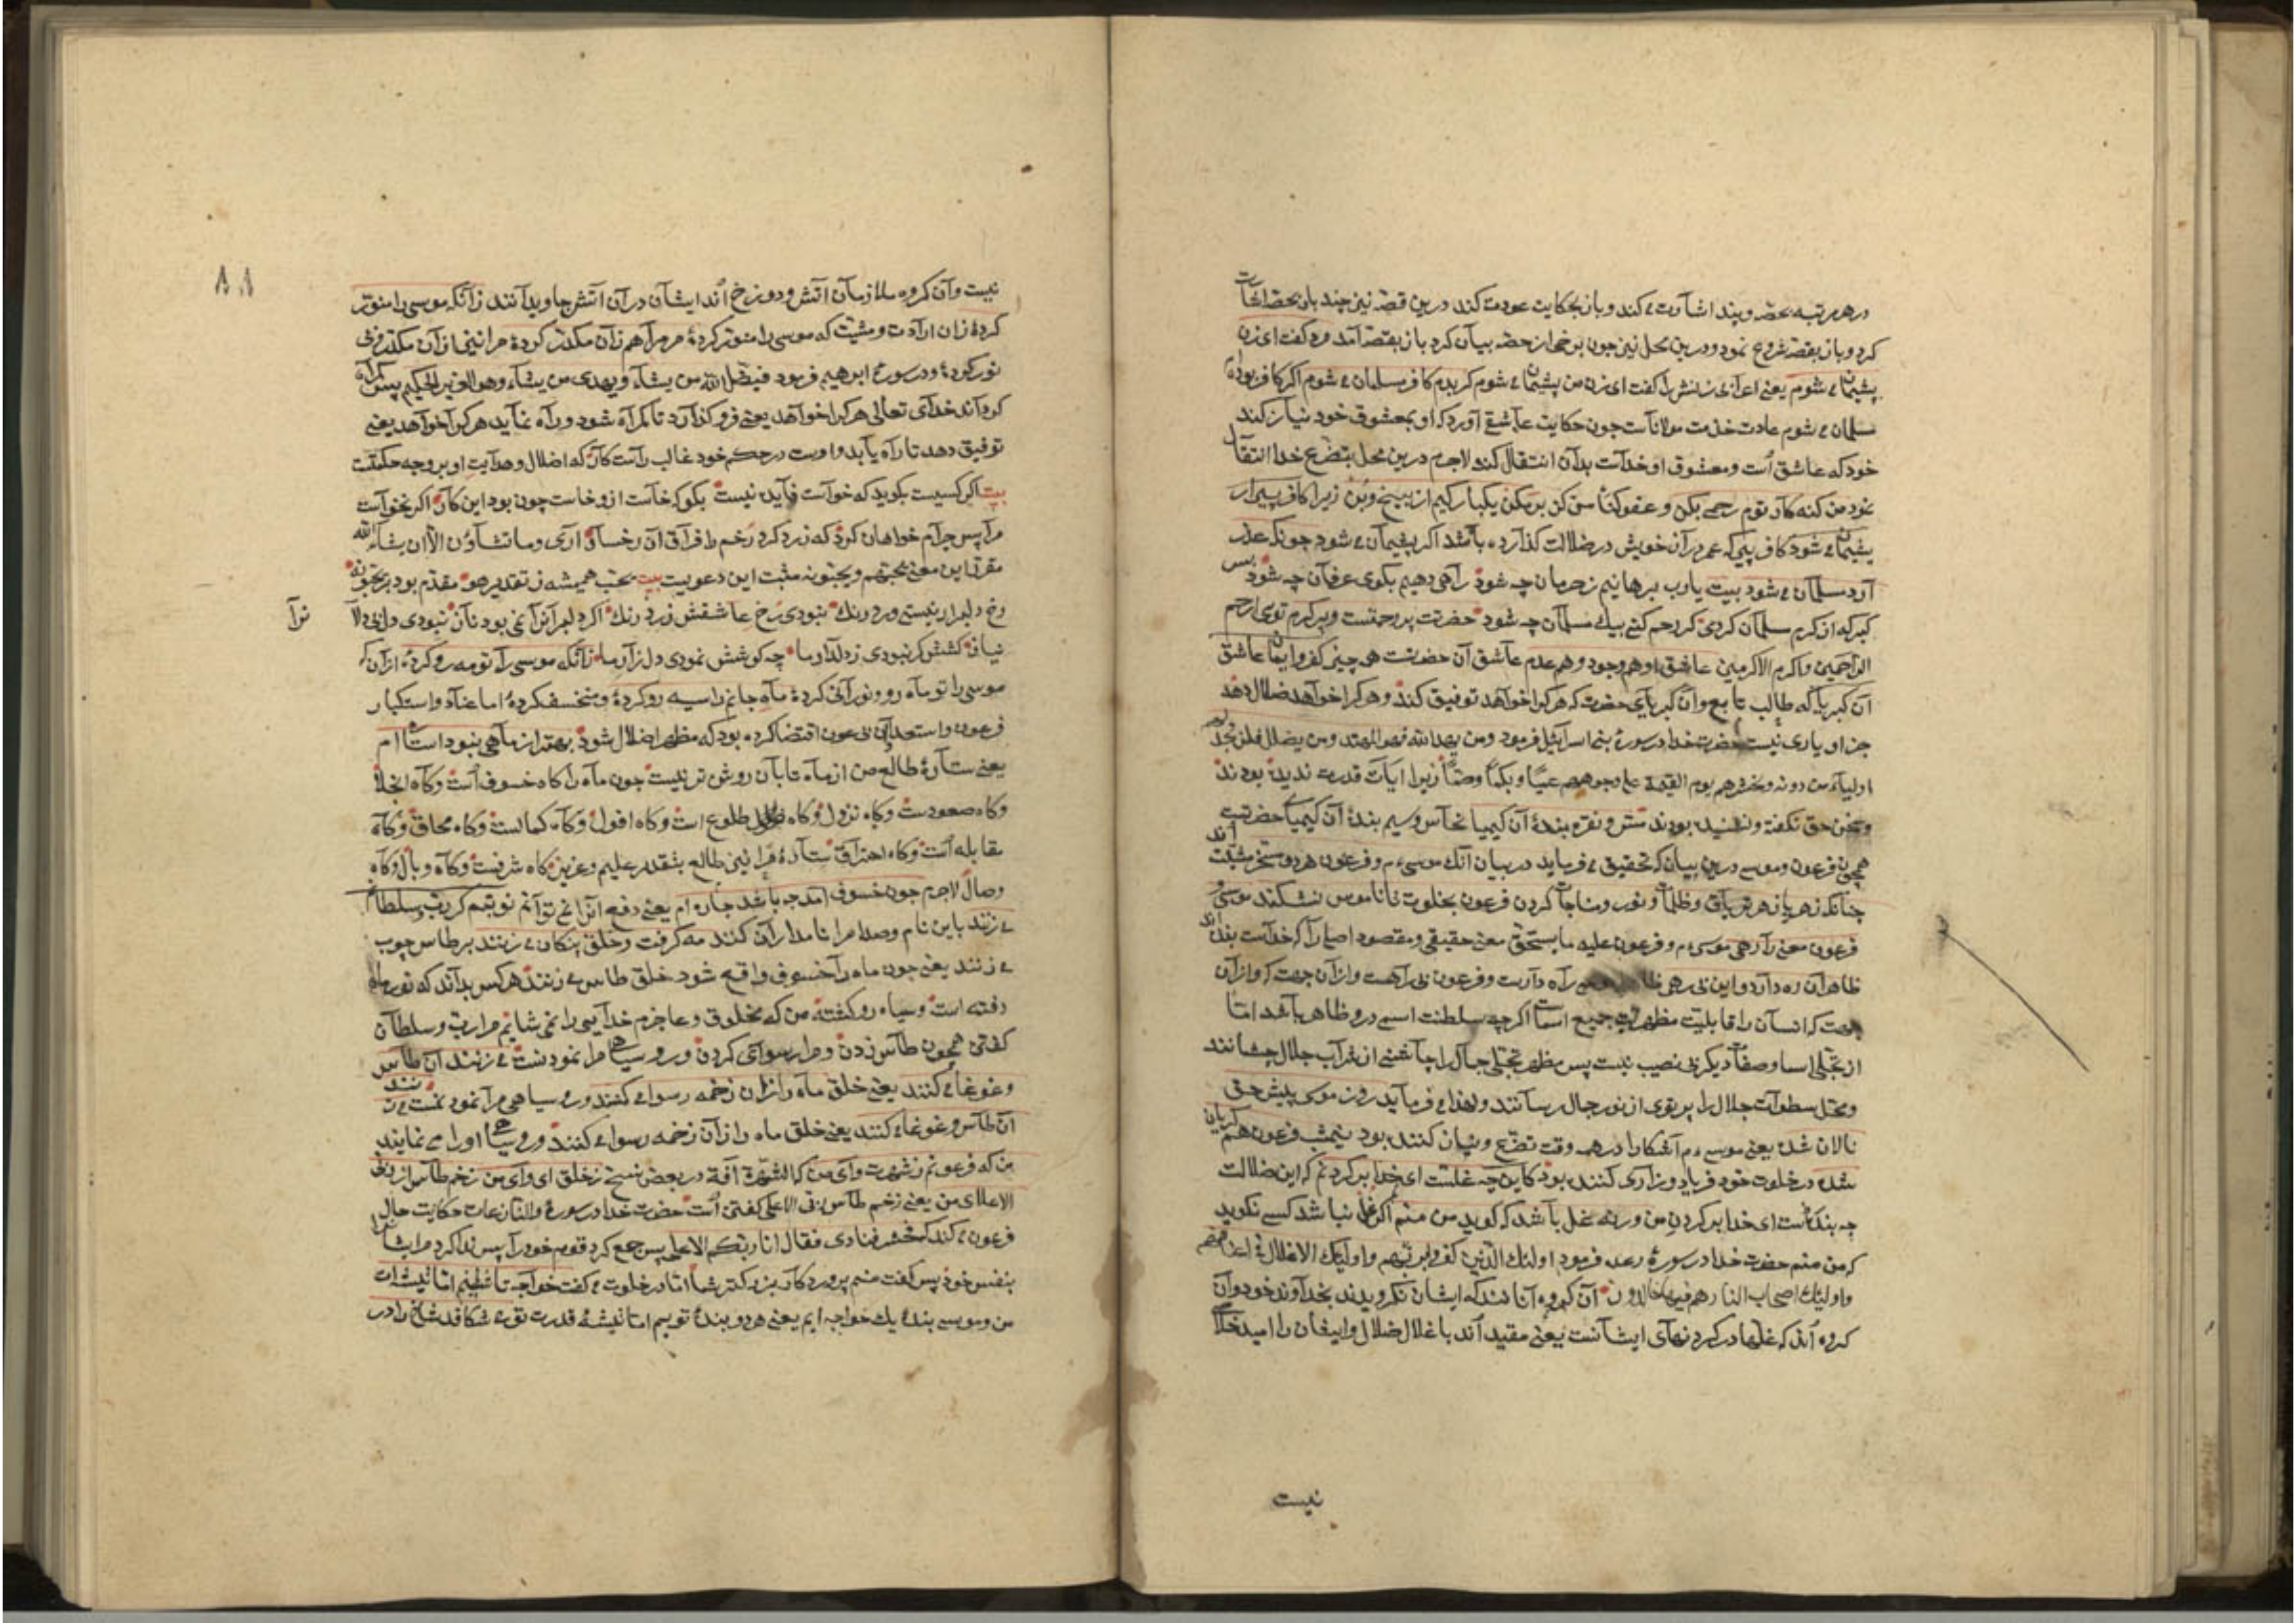 در هر مرتبه بحصه و پند اشارت می کند و باز بحکایت عودت کند درین قصه نیز چند بار بحصه اشارت
کرد و باز بقصه شروع نمود و درین محل نیز چون برخی از حصه بیان کرد باز بقصه آمد و گفت ای زن
پشیمان می شوم یعنی اعرابی زنش را گفت ای زن من پشیمان می شوم گر بدم کافر مسلمان می شوم اگر کافر بوده ام
مسلمان می شوم عادت خدمت مولاناست چون حکایت عاشقی آورد که او بمعشوق خود نیاز کند
خود که عاشق است و معشوق او خداست بدان انتقال کند لاجرم درین محل بتضرع خدا انتقال
نمود من گنه کار توم رحمی بکن و عفو کن
پشیمان می شود کافر پیری که عمر در آن خویش در ضلالت گذارده باشد اگر پشیمان می شود چونکه عذر
آرد مسلمان می شود بیت یارب برهانیم ز حرمان چه شود راهی دهیم بکوی عرفان چه شود بس
گبر که از کرم مسلمان کردی گر رحم کنی بیک مسلمان چه شود حضرت پر رحمتست و پر کرم توی ارحم
الراحمین و اکرم الاکرمین عاشق او هم وجود و هم عدم عاشق آن حضرتست هر چیز کفر و ایمان عاشق
آن کبریا که طالب تابع و آن کبریای حضرت که هر کرا خواهد توفیق کند و هر کرا خواهد ضلال دهد
جز او یاری نیست حضرت خدا در سورۀ بنی اسرائیل فرمود و من یهد الله فهو المهتد و من یضلل فلن تجد لهم
اولیاء من دونه و نحشرهم یوم القیمة علی وجوههم عمیا و بکما و صما زیرا آیات قدرت ندیده بودند
و سخن حق نگفته و نشنیده بودند مس و نقره بندۀ آن کیمیا نحاس و سیم بندۀ آن کیمیا حضرتست
همچون فرعون و موسی درین بیان که تحقیق می فرماید در بیان آنک موسی م و فرعون هر دو مسخر مشیت اند
چنانکه زهر پازهر تریاق و ظلمات و نور و مناجات کردن فرعون بخلوت تا ناموس نشکند موسی و
فرعون معنی را رهی موسی م و فرعون علیه ما یستحق معنی حقیقی و مقصود اصلی را که خداست بنده اند
ظاهر آن ره دارد و این بی رهی راه دارست و فرعون بی راهست و از آن جهت که و از آن
جهت که انسان را قابلیت مظهریت جمیع اسماست اگر چه سلطنت اسمی درو ظاهر باشد اما
از تجلی اسما و صفات دیگر بی نصیب نیست پس مظهر تجلی جمال را چاشنی از شراب جلال چشانند
و محل سطوات جلال را پرتوی از نور جمال رسانند و لهذا می فرماید روز موسی پیش حق
نالان شده یعنی موسی م آشکارا در همه وقت تضرع و نیاز کننده بود نیمشب فرعون هم گریان
شده در خلوت خود فریاد و زاری کننده بود کاین چه غلست ای خدا بر گردنم که این ضلالت
چه بندهاست ای خدا بر گردن من ورنه غل باشد که گوید من منم اگر غل نباشد کسی نگوید
که من منم حضرت خدا در سورۀ رعد فرمود اولئك الذین کفروا بربهم و اولئك الاغلال فی اعناقهم
و اولئك اصحاب النار هم فیها خالدون آن گروه آنانند که ایشان نگرویدند بخداوند خود و آن
گروه آند که غلها در گردنهای ایشانست یعنی مقید اند باغلال ضلال و ایشان را امید خلاص
نیست
۸۸
نیست و آن گروه ملازمان آتش و دوزخ اند ایشان در آن آتش جاوید آنند زانکه موسی را منور
کردۀ زان ارادت و مشیت که موسی را منور کردۀ مر مرا هم زان مکدر کردۀ مرا نیز از آن مکدر و بی
نور کردۀ و در سورۀ ابرهیم فرمود فیضل الله من یشاء و یهدی من یشاء و هو العزیز الحکیم پس گمراه
گرداند خدای تعالی هر کرا خواهد یعنی فرو گذارد تا گمراه شود و راه نماید هر کرا خواهد یعنی
توفیق دهد تا راه یابد و اوست در حکم خود غالب راست کار که اضلال و هدایت او بر وجه حکمتست
بیت اگر کسیت بگوید که خواست فایده نیست بگو که خاست ازو خاست چون بود این کار اگر نخواست
مرا پس چرام خواهان کرد که زرد کرد رخم را فراق آن رخسار آری و ما تشاؤن الا ان یشاء الله
مقرر این معنی یحبهم و یحبونه مثبت این دعویست بیت یحب همیشه ز تقدیر هو مقدم بود بر یحبونه
رخ دلبر ار نیستی ورد رنگ نبودی رخ عاشقش زرد رنگ اگر دلبر آنرا نمی بود ناز نبودی دل بی دلا نرا
نیاز کشش گر نبودی ز دلدار ما چه کوشش نمودی دل زار ما زانکه موسی را تو مه رو کردۀ از آنکه
موسی را تو ماه رو و نورانی کردۀ ماه جانم را سیه رو کردۀ و منخسف کردۀ اما عناد و استکبار
فرعون و استعداد فرعون اقتضا کرده بود که مظهر اضلال شود بهتر از ماهی نبود استاره ام
یعنی ستارۀ طالع من از ماه تابان روشن تر نیست چون ماه را گاه خسوف است و گاه انجلا
و گاه صعودست و گاه نزول و گاه طلوع است و گاه افول و گاه کمالست و گاه محاق و گاه
مقابله است و گاه احتراق ستارۀ مرا نیز طالع بتقدیر علیم و عزیز گاه شرفت و گاه و بال و گاه
وصال لاجرم چون خسوف آمد چه باشد چاره ام یعنی دفع آنرا نمی توانم نوبتم گر رب و سلطان
می زنند باین نام و صدا مرا نامدار آن کنند مه گرفت و خلق پنگان می زنند بر طاس چوب
می زنند یعنی چون ماه را خسوف واقع شود خلق طاس می زنند هر کس بداند که نور ماه
رفته است و سیاه رو گشته من که مخلوق و عاجزم خدایی را نمی شایم مرا رب و سلطان
گفتن همچون طاس زدن و مرا رسوای کردن و رو سیاهی مرا نمودنست می زنند آن طاس
و غوغا می کنند یعنی خلق ماه را از آن زخمه رسوا می کنند و رو سیاهی مرا نمودنست می زنند
آن طاس و غوغا می کنند یعنی خلق ماه را از آن زخمه رسوا می کنند و رو سیاهی او را می نمایند
من که فرعونم ز شهرت وای من که الشهرة آفة در بعضی نسخ ز خلق ای وای من زخم طاس از ربی
الاعلای من یعنی زخم طاس ربی الاعلی گفتن است حضرت خدا در سورۀ والنازعات حکایت حال
فرعون می کند که فحشر فنادی فقال انا ربکم الاعلی پس جمع کرد قوم خود را پس ندا کرد مر ایشان را
بنفس خود پس گفت منم پروردگار بزرگتر شما اما در خلوت می گفت خواجه تاشانیم اما تیشه ات
من و موسی بندۀ یك خواجه ایم یعنی هر دو بندۀ توییم اما تیشۀ قدرت تو می شکافد شاخ را در